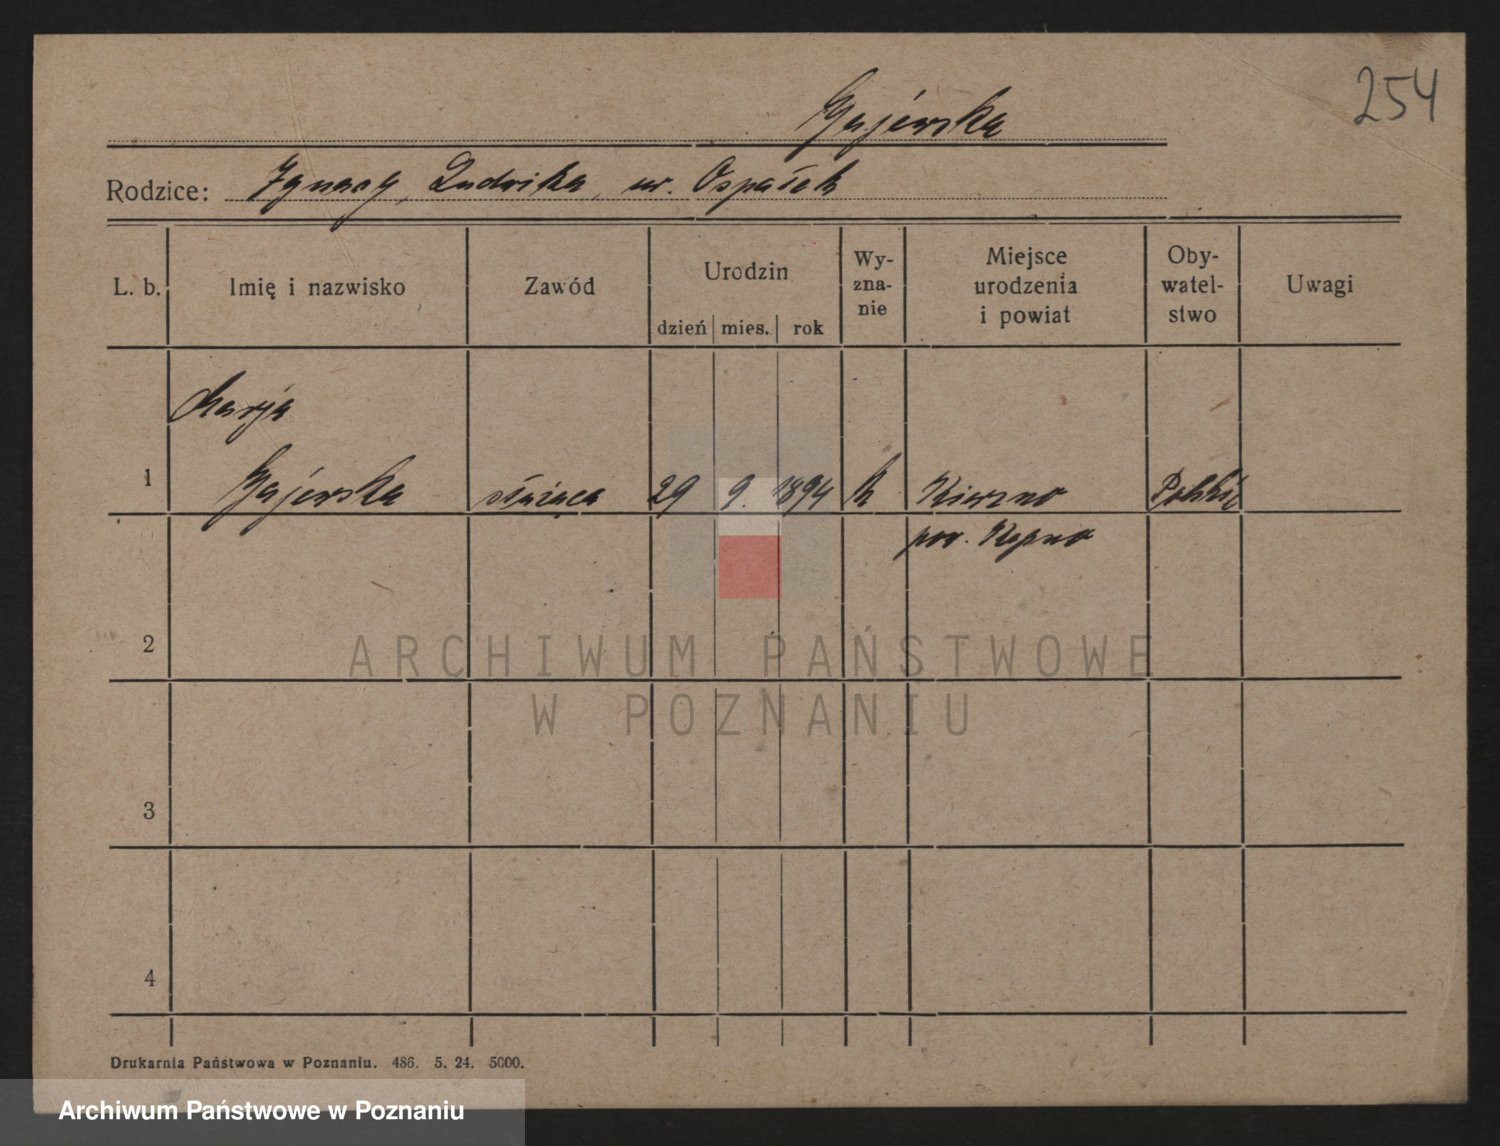 254
Gajewska
Rodzice: Ignacy, Ludwika, ur. Ospałek
L. b. Imię i nazwisko Zawód Urodzin dzień mies. rok Wy-zna-nie Miejsce urodzenia i powiat Oby-watel-stwo Uwagi
Marja
1 Gajewska służąca 29 9. 1894 k Kierzno Polskie
pow. Kępno
2
ARCHIWUM PAŃSTWOWE
W POZNANIU
3
4
Drukarnia Państwowa w Poznaniu. 486. 5. 24. 5000.
Archiwum Państwowe w Poznaniu